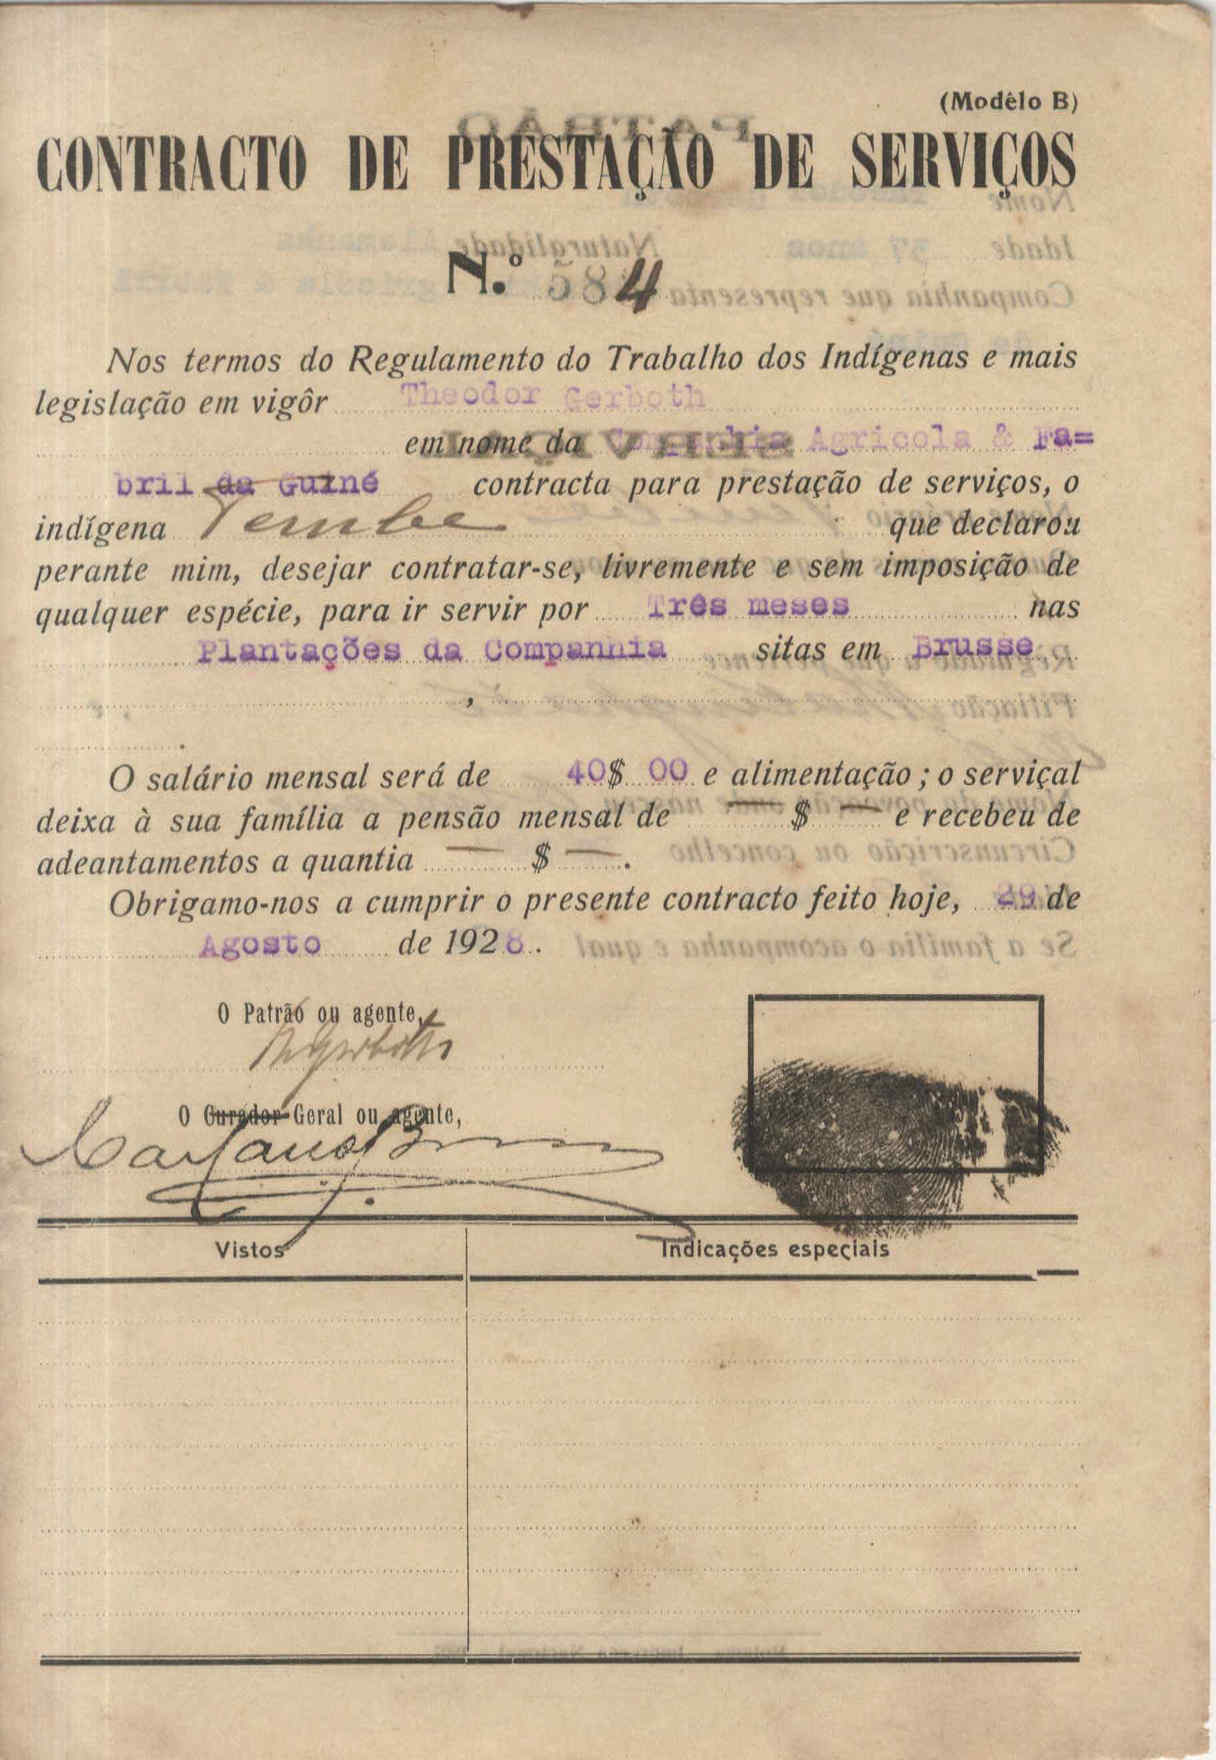 (Modêlo B)
CONTRACTO DE PRESTAÇÃO DE SERVIÇOS
N.º 584
Nos termos do Regulamento do Trabalho dos Indígenas e mais
legislação em vigôr Theodor Gerboth
em nome da Companhia Agricola & Fa=
bril da Guiné contracta para prestação de serviços, o
indígena Tembe que declarou
perante mim, desejar contratar-se, livremente e sem imposição de
qualquer espécie, para ir servir por Três meses nas
Plantações da Companhia sitas em Brusse
,
.
O salário mensal será de 40$00 e alimentação; o serviçal
deixa à sua família a pensão mensal de — $ — e recebeu de
adeantamentos a quantia — $ —.
Obrigamo-nos a cumprir o presente contracto feito hoje, 29 de
Agosto de 1928.
O Patrão ou agente,
Gerboth
O Curador Geral ou agente,
Vistos
Indicações especiais